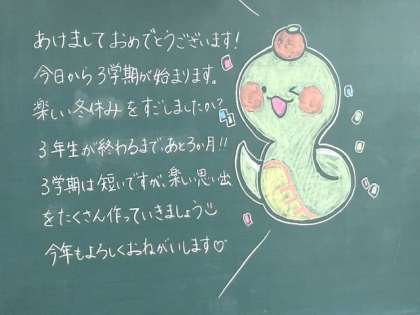 あけましておめでとうございます!
今日から3学期が始まります。
楽しい冬休みをすごしましたか?
3年生が終わるまで、あと3か月!!
3学期は短いですが、楽しい思い出
をたくさん作っていきましょう
今年もよろしくおねがいします♡